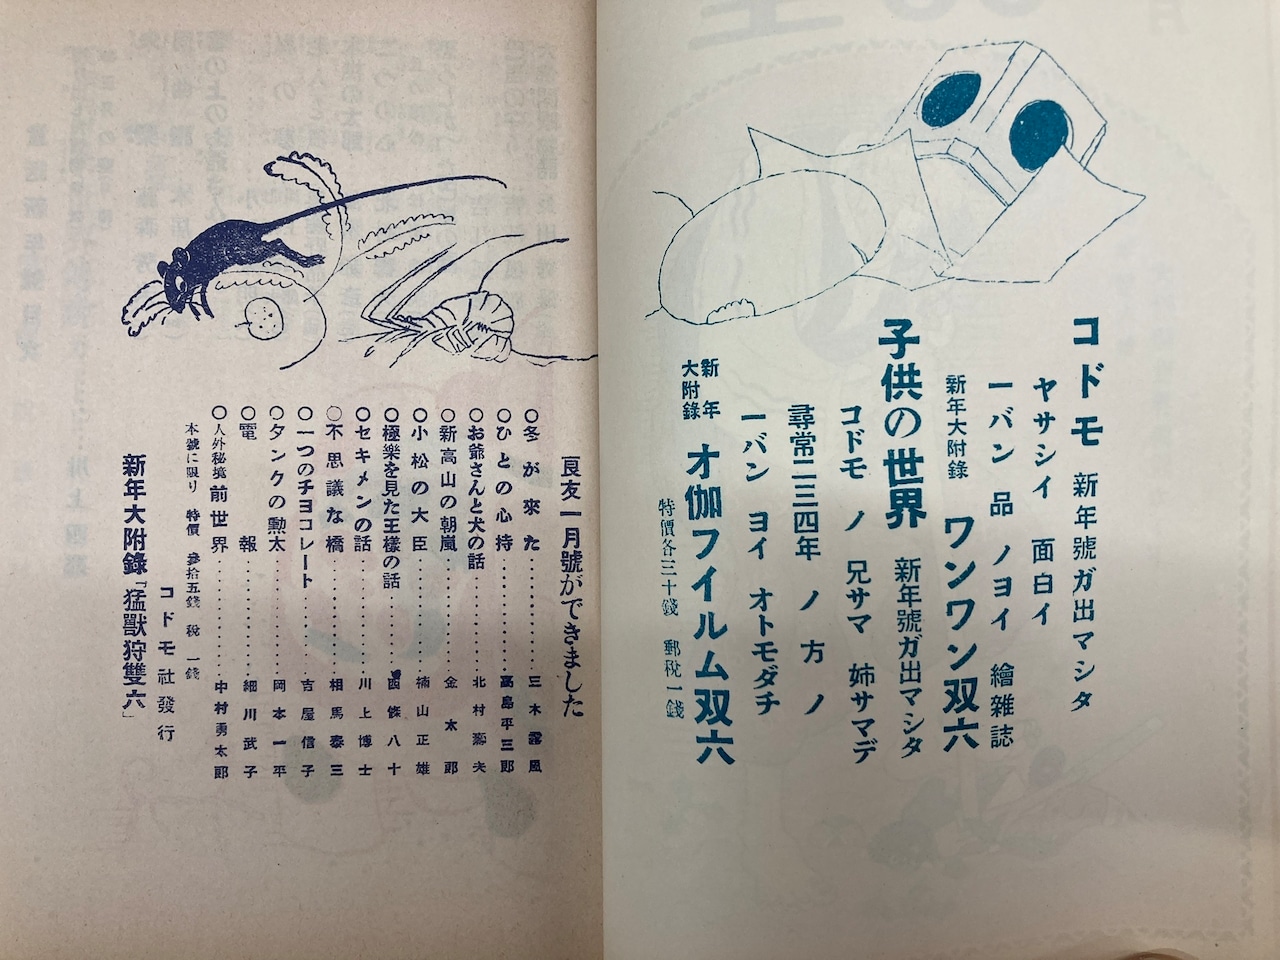 コドモ 新年號ガ出マシタ
ヤサシイ 面白イ
一バン 品 ノヨイ 繪雜誌
新年大附錄 ワンワン双六
子供の世界 新年號ガ出マシタ
コドモ ノ 兄サマ 姉サマデ
尋常二三四年 ノ 方 ノ
一バン ヨイ オトモダチ
新年大附錄 オ伽フイルム双六
特價各三十錢 郵税一錢
良友一月號ができました
○冬が來た…………三木露風
○ひとの心持…………高島平三郎
○お爺さんと犬の話…………北村壽夫
○新高山の朝嵐…………金太郎
○小松の大臣…………楠山正雄
○極樂を見た王樣の話…………西條八十
○セキメンの話…………川上博士
○不思議な橋…………相馬泰三
○一つのチヨコレート…………吉屋信子
○タンクの勳太…………岡本一平
○電報…………細川武子
○人外秘境 前世界…………中村勇太郎
本號に限り 特價 參拾五錢 税 一錢
コドモ社發行
新年大附錄「猛獸狩雙六」